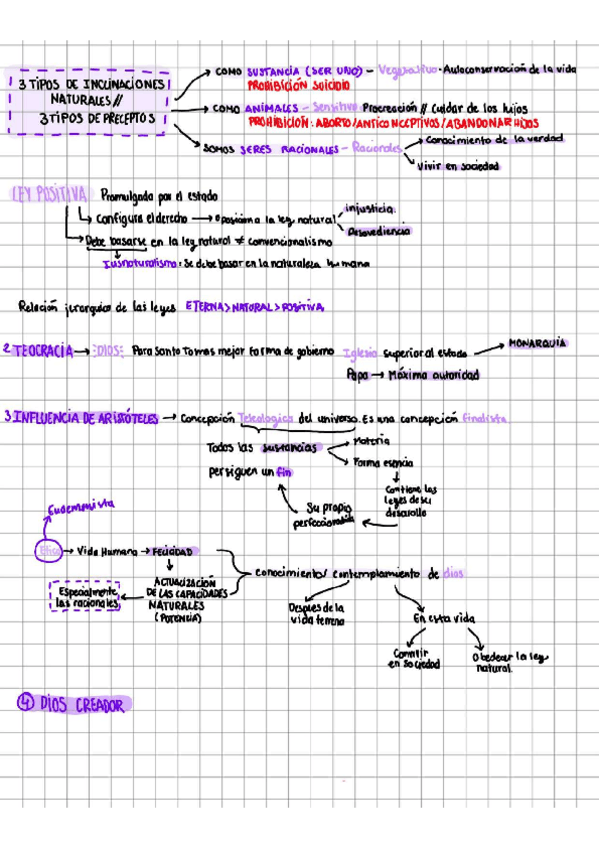 3 TIPOS DE INCLINACIONES
NATURALES //
3 TIPOS DE PRECEPTOS
COMO SUSTANCIA (SER UNO) – Vegetativo · Autoconservación de la vida
PROHIBICIÓN SUICIDIO
COMO ANIMALES – Sensitivo · Procreación // cuidar de los hijos
PROHIBICIÓN: ABORTO/ANTICONCEPTIVOS/ABANDONAR HIJOS
SOMOS SERES RACIONALES – Racionales
Conocimiento de la verdad
Vivir en sociedad
LEY POSITIVA Promulgada por el estado
Configura el derecho → oposición a la ley natural
injusticia
Desovediencia
Debe basarse en la ley natural ≠ convencionalismo
Iusnaturalismo: Se debe basar en la naturaleza humana
Relación jerarquica de las leyes ETERNA > NATURAL > POSITIVA
2. TEOCRACIA → DIOS Para Santo Tomas mejor forma de gobierno Iglesia superior al estado → MONARQUÍA
Papa → Máxima autoridad
3 INFLUENCIA DE ARISTÓTELES → Concepción Teleologica del universo. Es una concepción finalista
Todas las sustancias
Materia
Forma esencia
persiguen un fin
Contiene las
leyes de su
desarrollo
Su propio
Eudemonista
Etica → Vida Humana → FELICIDAD
Conocimiento/ Contemplamiento de dios
ACTUALIZACIÓN
DE LAS CAPACIDADES
NATURALES
(POTENCIA)
Especialmente
las racionales
Despues de la
vida terrena
En esta vida
en sociedad
Obedecer la ley
natural.
4 DIOS CREADOR